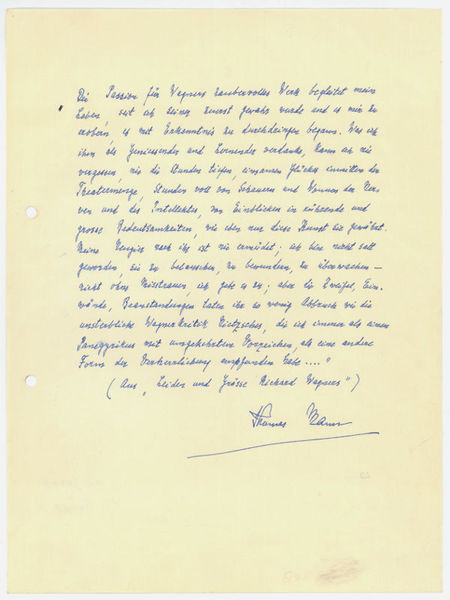 Die Passion für Wagners zaubervolles Werk begleitet mein
Leben, seit ich seiner zuerst gewahr wurde und es mir zu
erobern, es mit Erkenntnis zu durchdringen begann. Was ich
ihm als Geniessender und Lernender verdanke, kann ich nie
vergessen, nie die Stunden tiefen, einsamen Glückes inmitten der
Theatermenge, Stunden voll von Schauern und Wonnen der Ner-
ven und des Intellektes, von Einblicken in rührende und
grosse Bedeutsamkeiten, wie eben nur diese Kunst sie gewährt.
Meine Neugier nach ihr ist nie ermüdet, ich bin nicht satt
geworden, sie zu belauschen, zu bewundern, zu überwachen –
nicht ohne Misstrauen, ich gebe es zu; aber die Zweifel, Ein-
wände, Beanstandungen taten ihr so wenig Abbruch wie die
unsterbliche Wagnerkritik Nietzsches, die ich immer als einen
Panegyrikus mit umgekehrtem Vorzeichen, als eine andere
Form der Verherrlichung empfunden habe...."
(Aus „Leiden und Grösse Richard Wagners")
Thomas Mann